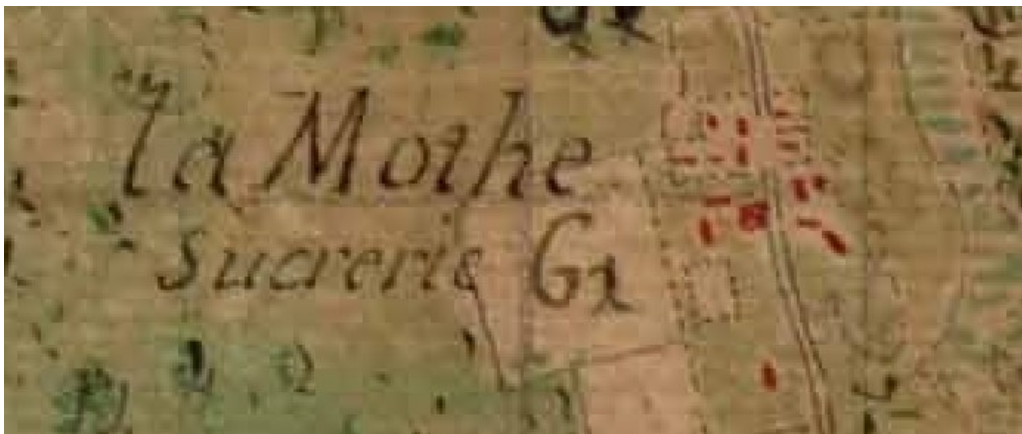 la Mothe
Sucrerie Gx